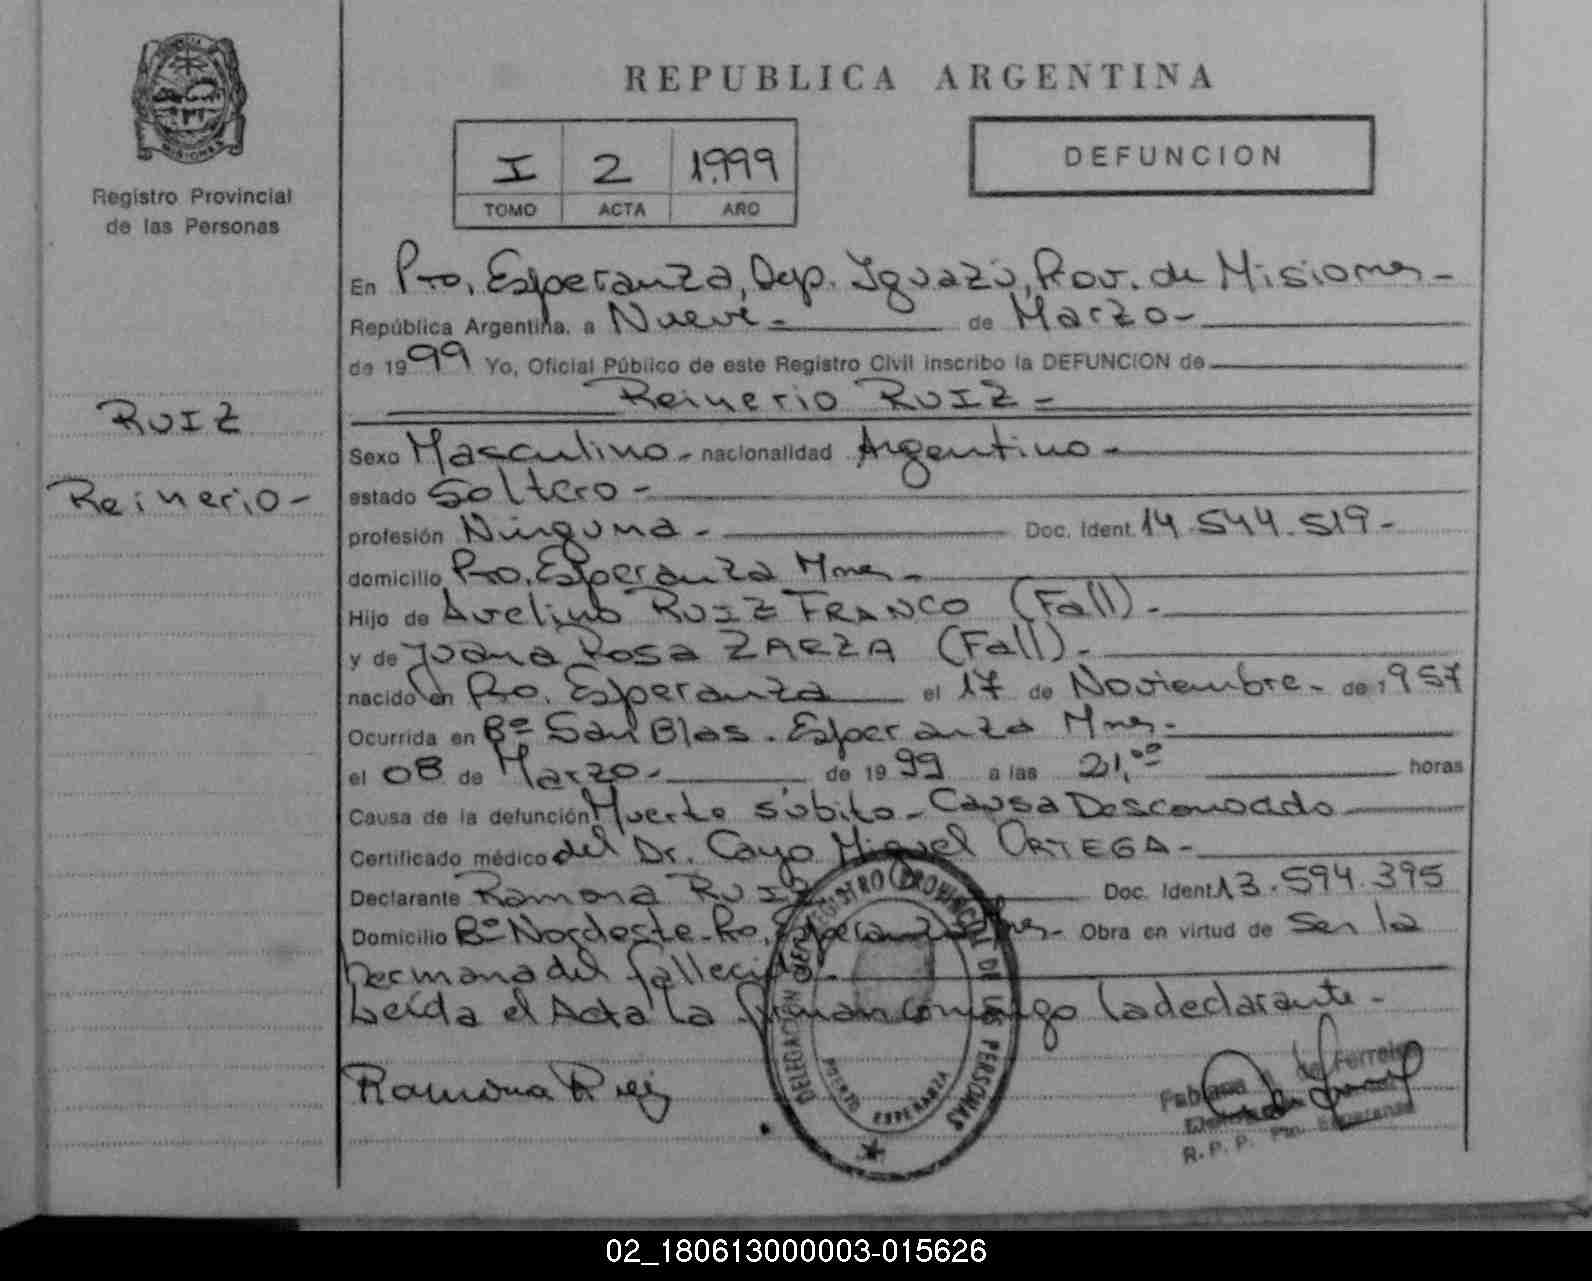 REPUBLICA ARGENTINA
PROVINCIA DE
MISIONES
Registro Provincial
de las Personas
I 2 1.999
TOMO ACTA AÑO
DEFUNCION
RUIZ
Reinerio -
En Pto. Esperanza, Dep. Iguazú, Prov. de Misiones -
República Argentina, a Nueve - de Marzo -
de 1999 Yo, Oficial Público de este Registro Civil inscribo la DEFUNCION de
Reinerio RUIZ -
Sexo Masculino - nacionalidad Argentino -
estado Soltero -
profesión Ninguna - Doc. Ident. 14.544.519 -
domicilio Pto. Esperanza Mnes -
Hijo de Avelino RUIZ FRANCO (Fall) -
y de Juana Rosa ZARZA (Fall) -
nacido en Pto. Esperanza el 17 de Noviembre - de 1957
Ocurrida en Bº San Blas. Esperanza Mnes -
el 08 de Marzo - de 1999 a las 21,00 horas
Causa de la defunción Muerte súbita - Causa Desconocido
Certificado médico del Dr. Cayo Miguel ORTEGA -
Declarante Ramona RUIZ Doc. Ident. 13.594.395
Domicilio Bº Nordeste - Pto. Esperanza Mnes - Obra en virtud de Ser la
hermana del fallecido -
Leída el Acta la firman conmigo la declarante -
Ramona Ruiz
DELEGACIÓN DEL REGISTRO PROVINCIAL DE LAS PERSONAS
PUERTO ESPERANZA
Fabiana de Ferreira
R. P. P. Pto. Esperanza
02_180613000003-015626